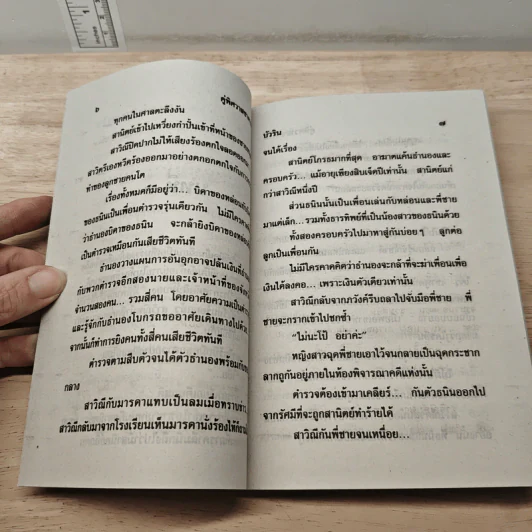 ๖
ทุกคนในศาลตะลึงงัน
สานิตย์เข้าไปเหวี่ยงกำปั้นเข้าที่หน้าของ
สาวิณีปิดปากไม่ให้เสียงร้องตกใจ
สาวิตรีเองหวีดร้องออกมาอย่างตกอกตกใจกับการ
ทำของลูกชายคนโต
เรื่องทั้งหมดก็มีอยู่ว่า... บิดาของหล่อน
ของธนินเป็นเพื่อนตำรวจรุ่นเดียวกัน ไม่มีใคร
ว่าธำนองบิดาของธนิน จะกล้ายิงบิดาของ
เป็นตำรวจเหมือนกันเสียชีวิตทันที
ธำนองวางแผนการอันอุกอาจปล้นเงินที่
กับพวกตำรวจอีกสองนายและเจ้าหน้าที่ของ
จำนวนสองคน... รวมสี่คน โดยอาศัยความเป็น
และรู้จักกับธำนองโบกรถขออาศัยเดินทางไปด้วย
จากนั้นก็ทำการยิงคนทั้งสี่คนเสียชีวิตทันที
ตำรวจตามสืบตัวจนได้ตัวธำนองพร้อมกับ
กลาง
สาวิณีกับมารดาแทบเป็นลมเมื่อทราบข่าว
สาวิณีกลับมาจากโรงเรียนเห็นมารดานั่งร้องไห้
บัวริน
๗
จนได้เรื่อง
สานิตย์โกรธมากที่สุด อาฆาตแค้นธำนองและ
ครอบครัว... แม้อายุเพียงสิบเจ็ดปีเท่านั้น สานิตย์แก่
กว่าสาวิณีหนึ่งปี
ส่วนธนินนั้นเป็นเพื่อนเล่นกับหล่อนและพี่ชาย
มาแต่เล็ก...รวมทั้งธารทิพย์ที่เป็นน้องสาวของธนินด้วย
ทั้งสองครอบครัวไปมาหาสู่กันบ่อย ๆ ลูกต่อ
ลูกเป็นเพื่อนกัน
ไม่มีใครคาดคิดว่าธำนองจะกล้าที่จะฆ่าเพื่อนเพื่อ
เงินได้ลงคอ...เพราะเงินตัวเดียวเท่านั้น
สาวิณีกลับจากภวังค์รีบถลาไปจับมือพี่ชาย พี่
ชายจะกรากเข้าไปชกซ้ำ
“ไม่นะโป้ อย่าค่ะ”
หญิงสาวฉุดพี่ชายเอาไว้จนกลายเป็นฉุดกระชาก
ลากถูกันอยู่ภายในห้องพิจารณาคดีแห่งนั้น
ตำรวจต้องเข้ามาเคลียร์... กันตัวธนินออกไป
จากรัศมีที่จะถูกสานิตย์ทำร้ายได้
สาวิณีกันพี่ชายจนเหนื่อย...